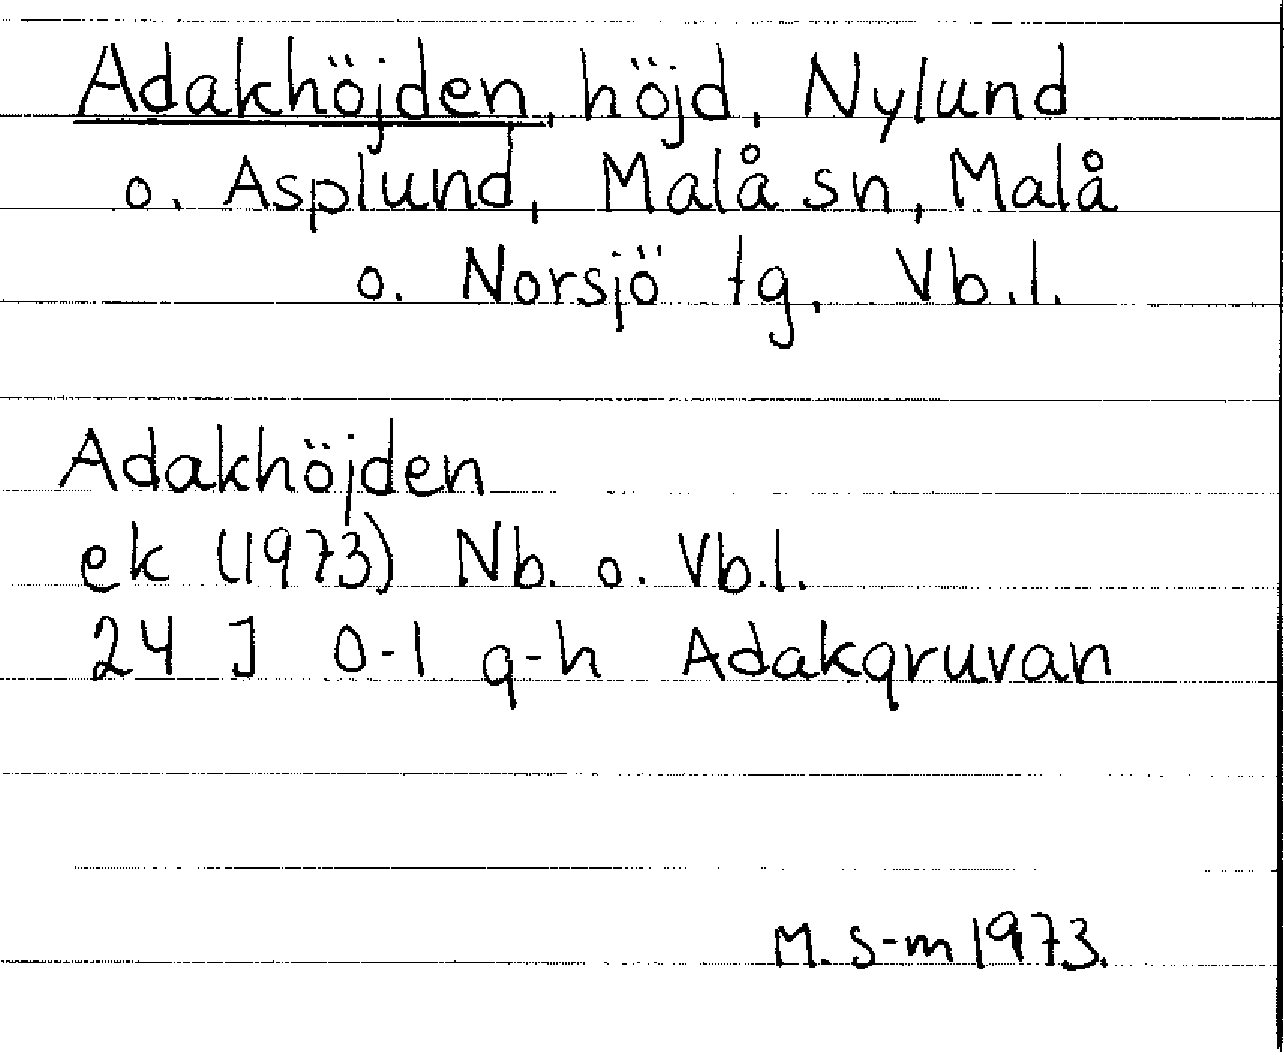 Adakhöjden, höjd, Nylund
o. Asplund, Malå sn, Malå
o. Norsjö tg, Vb.l.
Adakhöjden
ek (1973) Nb. o. Vb.l.
24 J 0-1 g-h Adakgruvan
M. S-m 1973.